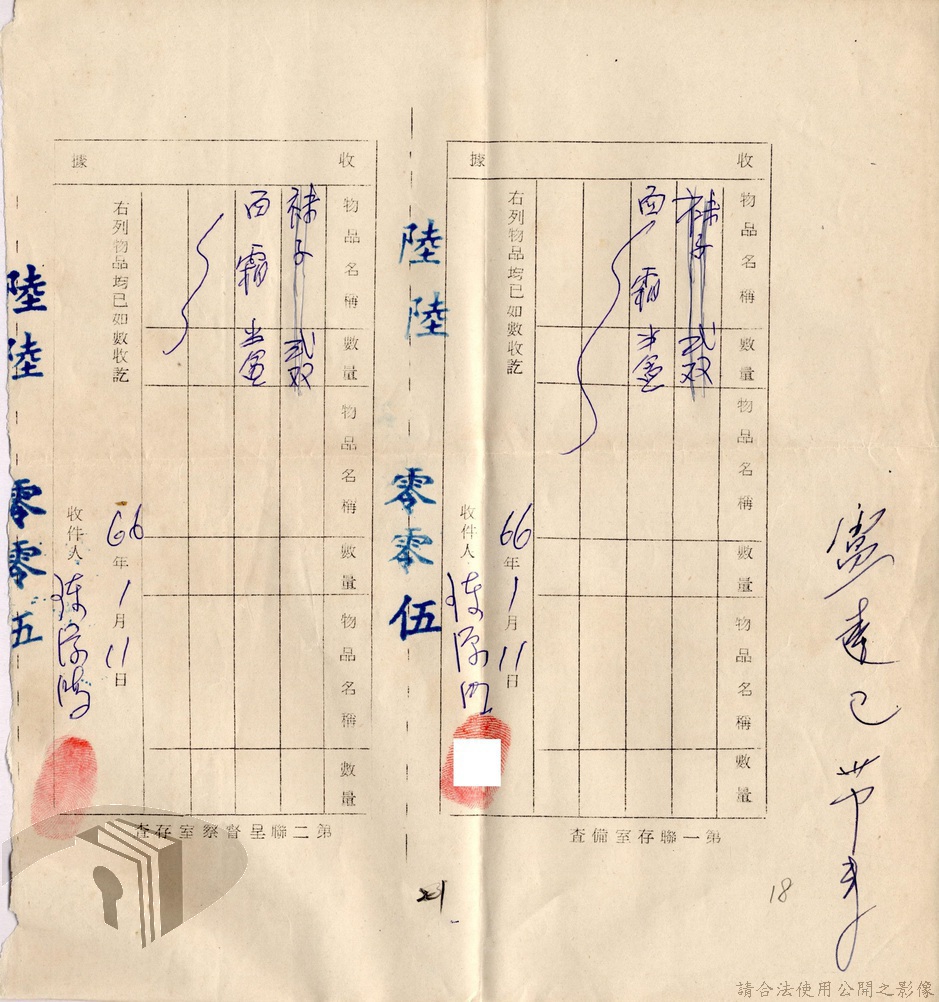 已帶
收據
物品名稱 數量 物品名稱 數量 物品名稱 數量
襪子 弍双
面霜 半盒
右列物品均已如數收訖
66年1月11日
收件人 陳
第一聯存室備查
陸陸 零零伍
收據
物品名稱 數量 物品名稱 數量 物品名稱 數量
襪子 弍双
面霜 半盒
右列物品均已如數收訖
66年1月11日
收件人 陳
第二聯呈督察室存查
陸陸 零零伍
18
請合法使用公開之影像